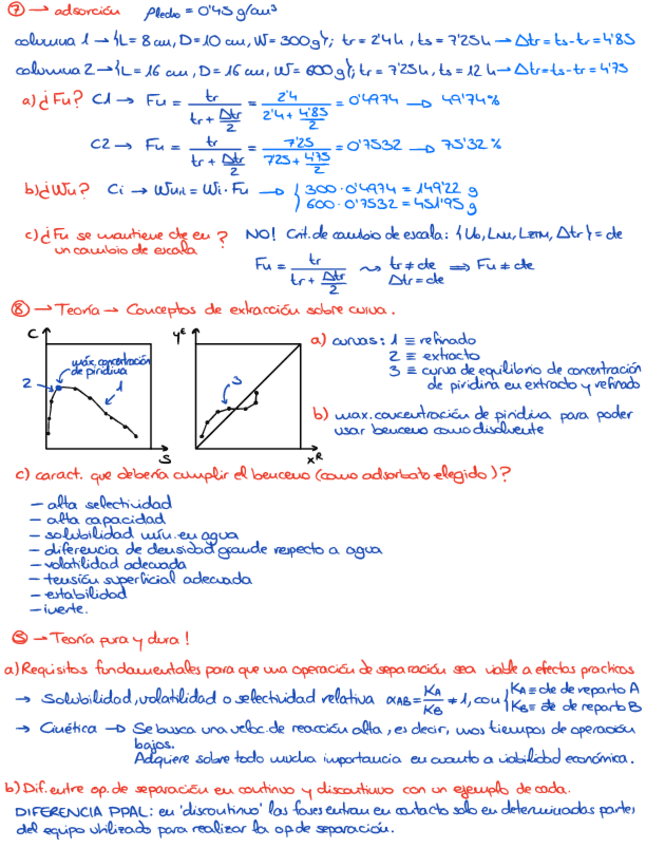 ⑦ → adsorción ρlecho = 0'45 g/cm³
columna 1 → {L = 8 cm, D = 10 cm, W = 300g}; tr = 2'4h, ts = 7'25h → Δtr = ts - tr = 4'85
columna 2 → {L = 16 cm, D = 16 cm, W = 600g}; tr = 7'25h, ts = 12 h → Δtr = ts - tr = 4'75
a) ¿Fu? C1 → Fu = tr / (tr + Δtr/2) = 2'4 / (2'4 + 4'85/2) = 0'4974 → 49'74%
C2 → Fu = tr / (tr + Δtr/2) = 7'25 / (7'25 + 4'75/2) = 0'7532 → 75'32%
b) ¿Wu? Ci → Wu,i = Wi · Fu → { 300 · 0'4974 = 149'22 g
600 · 0'7532 = 451'95 g
c) ¿Fu se mantiene cte en un cambio de escala? NO! Crit. de cambio de escala: {Uo, LNU, LZTM, Δtr} = cte
Fu = tr / (tr + Δtr/2) ⇝ tr ≠ cte Δtr = cte ⇒ Fu ≠ cte
⑧ → Teoría → Conceptos de extracción sobre curva.
C
máx. concentración de piridina
2
1
S
yᴱ
3
xᴿ
a) curvas: 1 ≡ refinado
2 ≡ extracto
3 ≡ curva de equilibrio de concentración
de piridina en extracto y refinado
b) max. concentración de piridina para poder
usar benceno como disolvente
c) caract. que debería cumplir el benceno (como adsorbato elegido)?
- alta selectividad
- alta capacidad
- solubilidad mín. en agua
- diferencia de densidad grande respecto a agua
- volatilidad adecuada
- tensión superficial adecuada
- estabilidad
- inerte.
→ Teoría pura y dura!
a) Requisitos fundamentales para que una operación de separación sea viable a efectos practicos
→ Solubilidad, volatilidad o selectividad relativa αAB = KA/KB ≠ 1, con {KA ≡ cte de reparto A
KB ≡ cte de reparto B
→ Cinética → Se busca una veloc. de reacción alta, es decir, unos tiempos de operación
bajos.
Adquiere sobre todo mucha importancia en cuanto a viabilidad económica.
b) Dif. entre op. de separación en continuo y discontinuo con un ejemplo de cada.
DIFERENCIA PPAL: en 'discontinuo' las fases entran en contacto solo en determinadas partes
del equipo utilizado para realizar la op de separación.